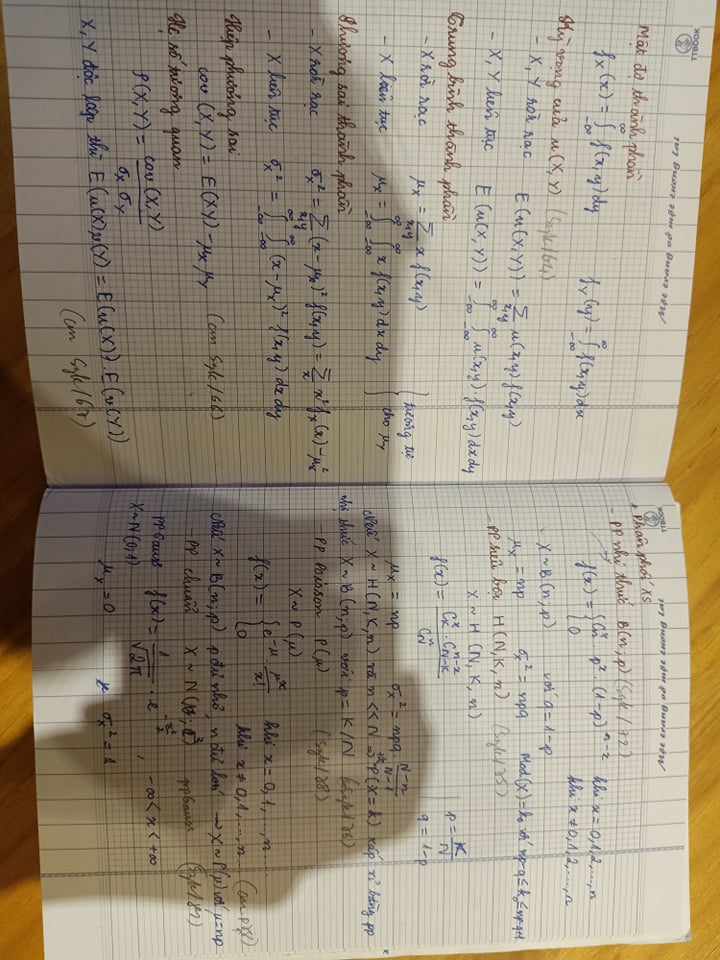 TTBOOK
Một trang vở một tương lai
Mật độ thành phần
f_X(x) = ∫_{-∞}^{∞} f(x,y)dy    f_Y(y) = ∫_{-∞}^{∞} f(x,y)dx
Kỳ vọng của u(X,Y) (Sgk/64)
- X, Y rời rạc    E(u(X,Y)) = Σ_{x,y} u(x,y) f(x,y)
- X, Y liên tục    E(u(X,Y)) = ∫_{-∞}^{∞} ∫_{-∞}^{∞} u(x,y).f(x,y)dxdy
Trung bình thành phần
- X rời rạc    μ_X = Σ_{x,y} x f(x,y)
- X liên tục    μ_X = ∫_{-∞}^{∞} ∫_{-∞}^{∞} x f(x,y) dx dy
} tương tự
cho μ_Y
Phương sai thành phần
- X rời rạc    σ_X² = Σ_{x,y} (x-μ_X)² f(x,y) = Σ_x x² f_X(x) - μ_X²
- X liên tục    σ_X² = ∫_{-∞}^{∞} ∫_{-∞}^{∞} (x-μ_X)² f(x,y) dx dy
Hiệp phương sai
cov(X,Y) = E(XY) - μ_X μ_Y    (cm Sgk/66)
Hệ số tương quan
ρ(X,Y) = cov(X,Y) / σ_X σ_Y
X, Y độc lập thì E(u(X)v(Y)) = E(u(X)).E(v(Y))
(cm Sgk/67)
TTBOOK
Một trang vở một tương lai
+ Phân phối XS
- PP nhị thức B(n;p) (Sgk/72)
f(x) = { C_n^x . p^x . (1-p)^{n-x}    khi x = 0,1,2,...,n
0    khi x ≠ 0,1,2,...,n
- X ~ B(n;p)    với q = 1-p
μ_X = np    σ_X² = npq    Mod(X) = k₀ với np-q ≤ k₀ ≤ np-q+1
- PP siêu bội H(N,K,n)    (Sgk/75)
X ~ H(N,K,n)
f(x) = C_K^x . C_{N-K}^{n-x} / C_N^n    | p = K/N
q = 1-p
μ_X = np    σ_X² = npq . (N-n)/(N-1)
Nếu X ~ H(N,K,n) và n << N → P(X=k) xấp xỉ bằng pp
nhị thức X ~ B(n;p) với p = K/N (Sgk/76)
- PP Poisson P(μ)    (Sgk/78)
X ~ P(μ)
f(x) = { e^{-μ} . μ^x / x!    khi x = 0,1,...,n...
0    khi x ≠ 0,1,...,n...    (cm p78)
Nếu X ~ B(n;p) p đủ nhỏ, n đủ lớn → X ~ P(μ) với μ = np
- PP chuẩn X ~ N(    pp Gauss (Sgk/
PP Gauss f(x) = 1/√(2π) . e^{-x²/2}, -∞ < x < +∞
X ~ N(0;1)
μ_X = 0    σ_X² = 1